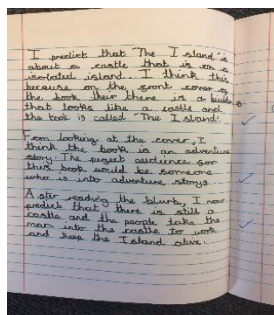 I predict that "The Island" is
about a castle that is on an
isolated island. I think this
because on the front cover of
the book their there is a
that looks like a castle and
the book is called "The Island".
From looking at the cover, I
think the book is an adventure
story. The audience for
this book would be someone
who is into adventure storys
After reading the blurb, I now
predict that there is still a
castle and the people take the
man into the castle to work
and keep the Island alive.